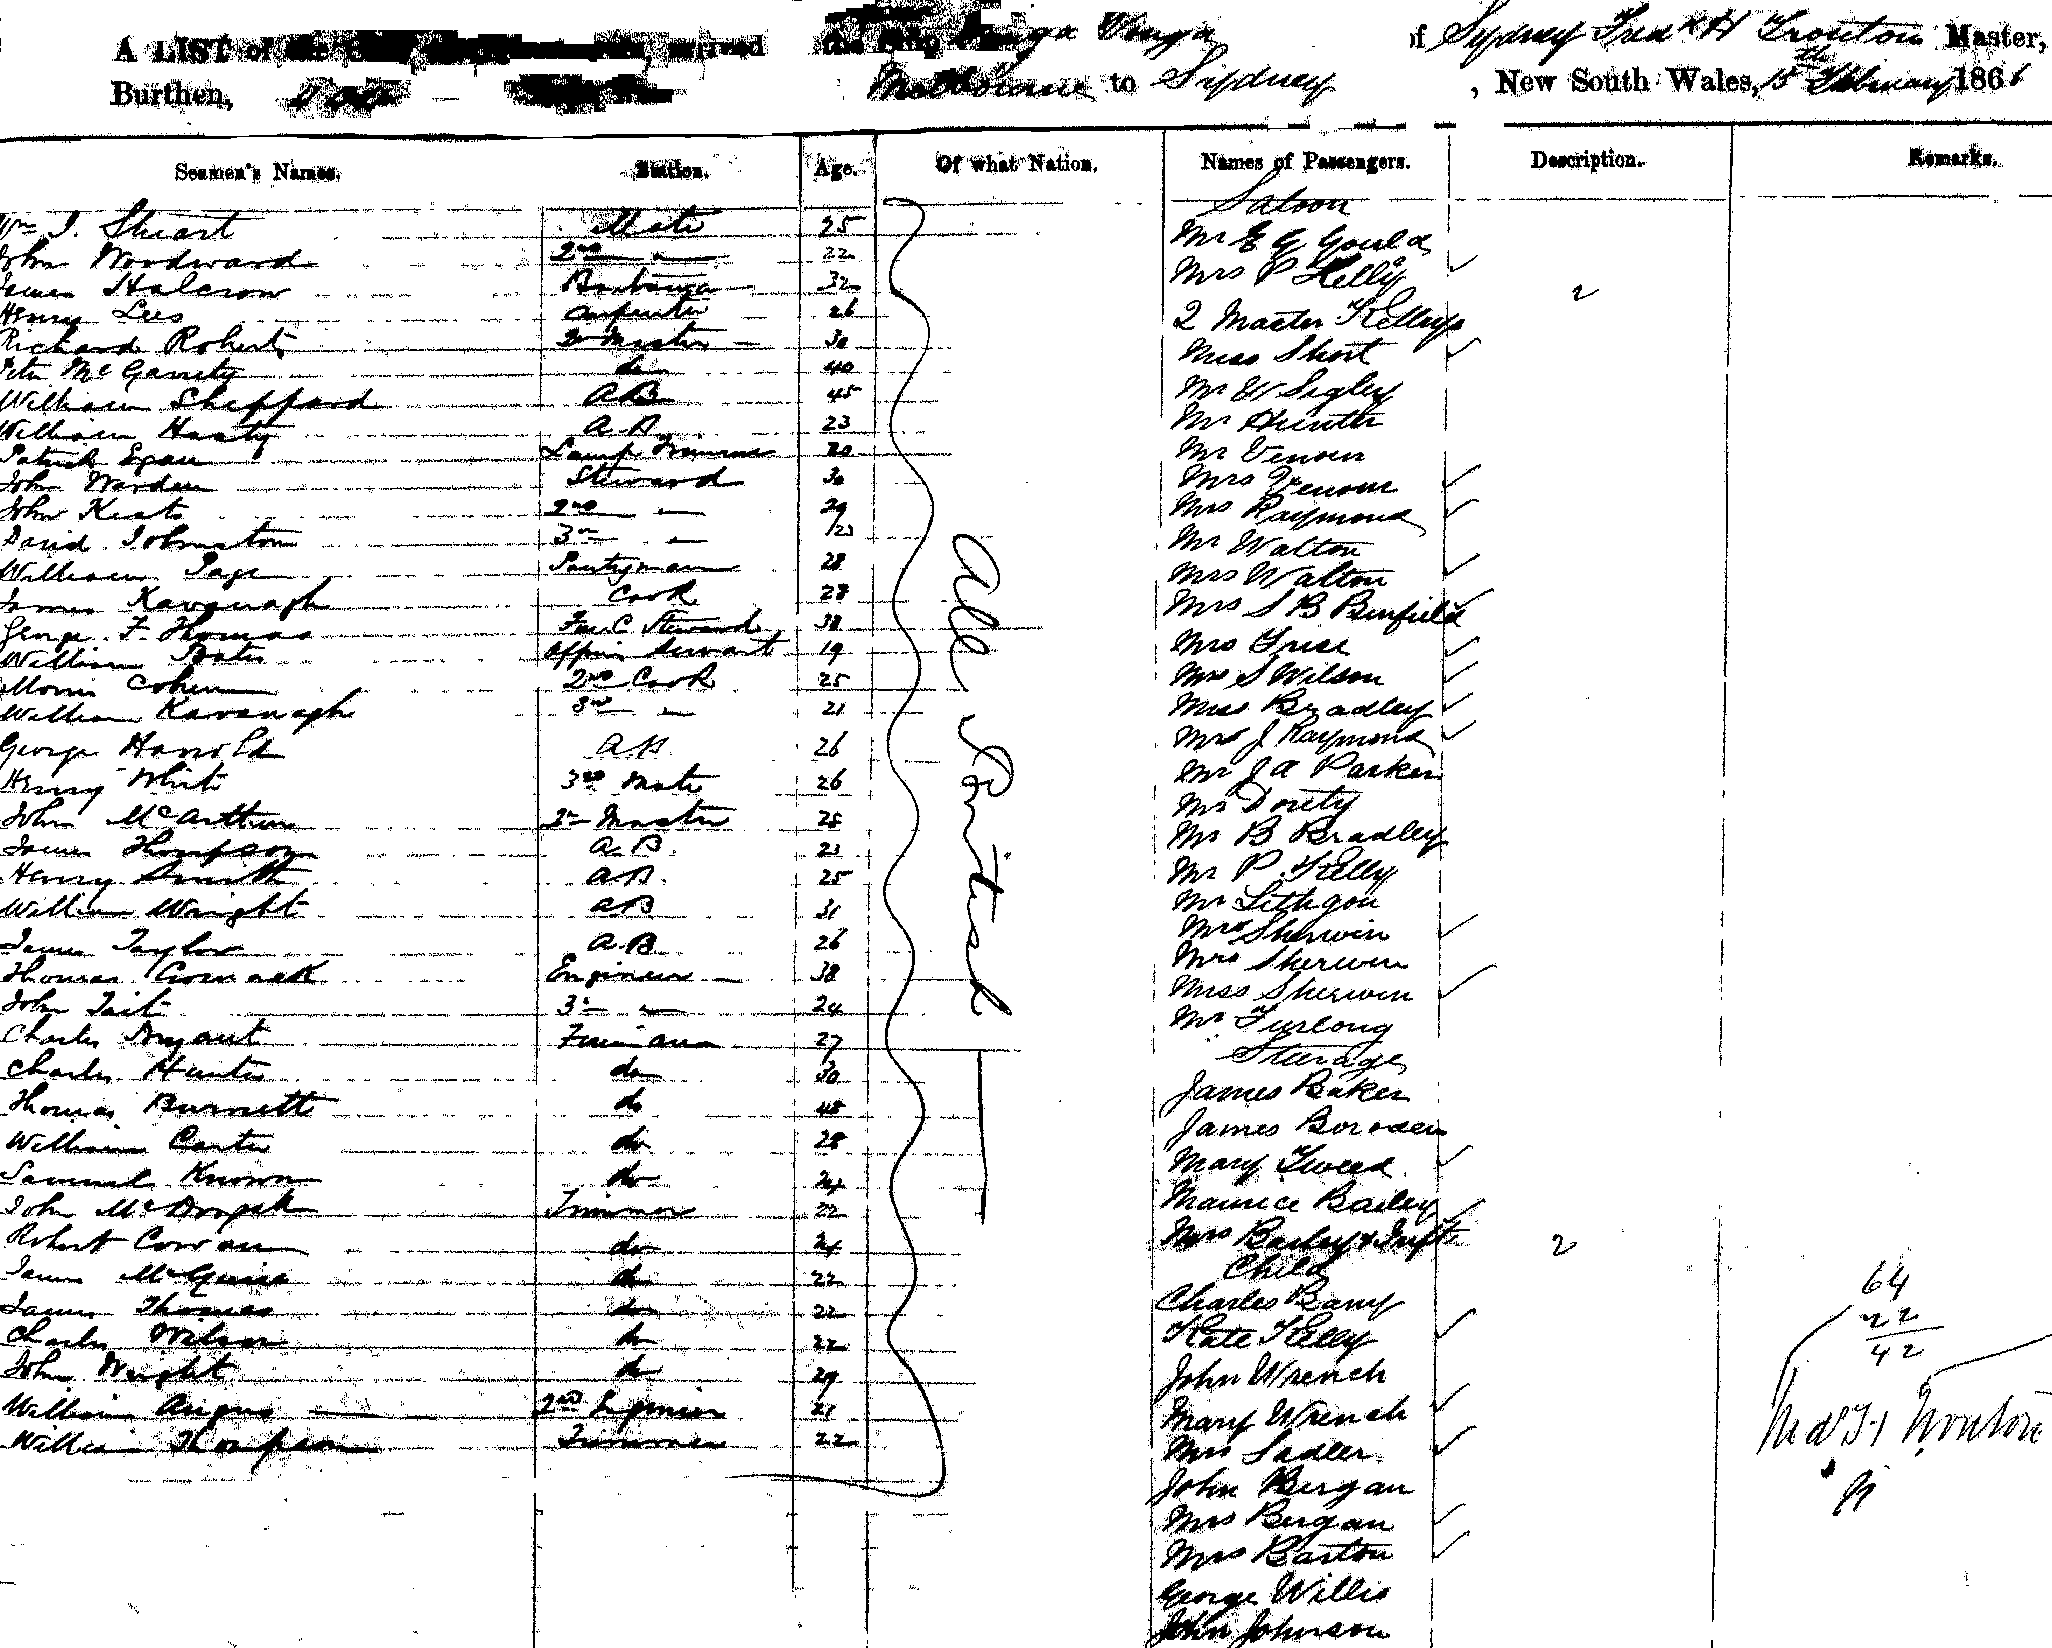 A LIST of the arrived the Ship Wonga Wonga of Sydney Fredk H Trouton Master,
Burthen, Melbourne to Sydney , New South Wales, 15th February 1866
Seamen's Names. Station. Age. Of what Nation. Names of Passengers. Description. Remarks.
Saloon
Wm J. Stuart Mate 25
Mr E G Gould
John Woodward 2nd " 22
Mrs P Kelly
James Halcrow 32
2
Henry Lees Carpenter 26
2 Master Kellys
Richard Roberts Qr Master 30
Miss Short
Peter McGarrety do 40
Mr W Sigley
William Sheppard AB 45
Mr Hunter
William Hasty A.B. 23
Patrick Egan Lamp Trimmer 20
Mr Venour
John Warden Steward 30
Mrs Venour
John Keats 2nd " 29
Mrs Raymond
David Johnston 3rd " 23
Mr Walton
William Page Pantryman 28
Mrs Walton
James Kavanagh Cook 28
Mrs S B Binfield
George F. Thomas For. C Steward 38
Mrs Fuse
William Bates Officers Servant 19
Mrs S Wilson
Morris Cohen 2nd Cook 25
Miss Bradley
William Kavanagh 3rd " 21
Mrs J Raymond
George Harrold A.B. 26
Mr J A Parker
Henry White 3rd Mate 26
Mr Douty
John McArthur Qr Master 25
Mr B Bradley
James Thompson A.B. 21
Mr P. Kelly
Henry Smith AB. 25
Mr Lithgow
William Wright AB 31
Mr Sherwin
James Taylor A.B. 26
Mrs Sherwin
Thomas Cormack Engineer 38
Miss Sherwin
John Tait 3rd " 24
Mr Furlong
Charles Bryant Fireman 27
Steerage
Charles Hunter do 30
James Baker
Thomas Burnett do 48
James Borosen
William Carter do 28
Mary Tweed
Samuel Known do 24
Maurice Bailey
John McDonough Trimmer 22
Mrs Bailey & Inft
Robert Cowan do 24
2
Child
James McGuire do 22
Charles Bamf
James Thomas do 22
Kate Kelly
Charles Wilson do 22
John Wrench
John Wright do 29
Mary Wrench
William Angus 2nd Engineer 21
Mrs Sadler
William Thompson Trimmer 22
John Bergan
Mrs Bergan
Mrs Barton
George Willis
John Johnson
All British
64
22
42
Fredk H Trouton